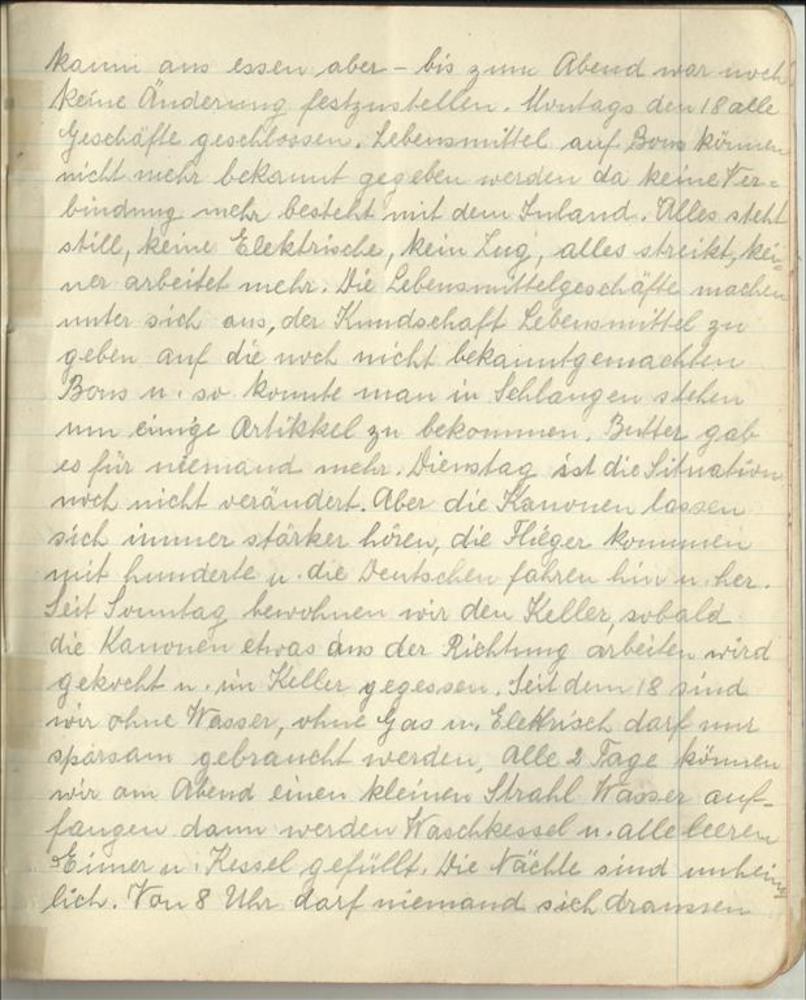 kaum ans essen aber – bis zum Abend war noch
keine Änderung festzustellen. Montags den 18 alle
Geschäfte geschlossen. Lebensmittel auf Bons können
nicht mehr bekannt gegeben werden da keine Ver=
bindung mehr besteht mit dem Inland. Alles steht
still, keine Elektrische, kein Zug, alles streikt, kei=
ner arbeitet mehr. Die Lebensmittelgeschäfte machen
unter sich aus, der Kundschaft Lebensmittel zu
geben auf die noch nicht bekanntgemachten
Bons u. so konnte man in Schlangen stehen
um einige Artikkel zu bekommen. Butter gab
es für niemand mehr. Dienstag ist die Situation
noch nicht verändert. Aber die Kanonen lassen
sich immer stärker hören, die Flieger kommen
mit hunderte u. die Deutschen fahren hin u. her.
Seit Sonntag bewohnen wir den Keller, sobald
die Kanonen etwas aus der Richtung arbeiten wird
gekocht u. im Keller gegessen. Seit dem 18 sind
wir ohne Wasser, ohne Gas u. Elektrisch darf nur
sparsam gebraucht werden, Alle 2 Tage können
wir am Abend einen kleinen Strahl Wasser auf-
fangen dann werden Waschkessel u. alle leeren
Eimer u. Kessel gefüllt. Die Nächte sind unheim
lich. Von 8 Uhr darf niemand sich draussen